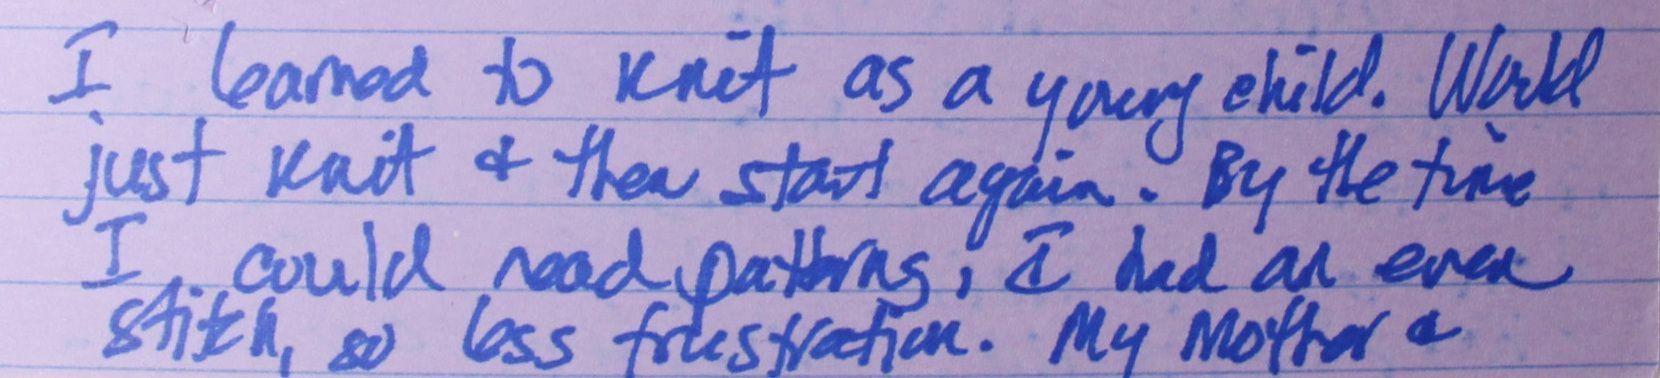 I learned to knit as a young child. Would
just knit & then start again. By the time
I could read patterns, I had an even
stitch, so less frustration. My Mother &